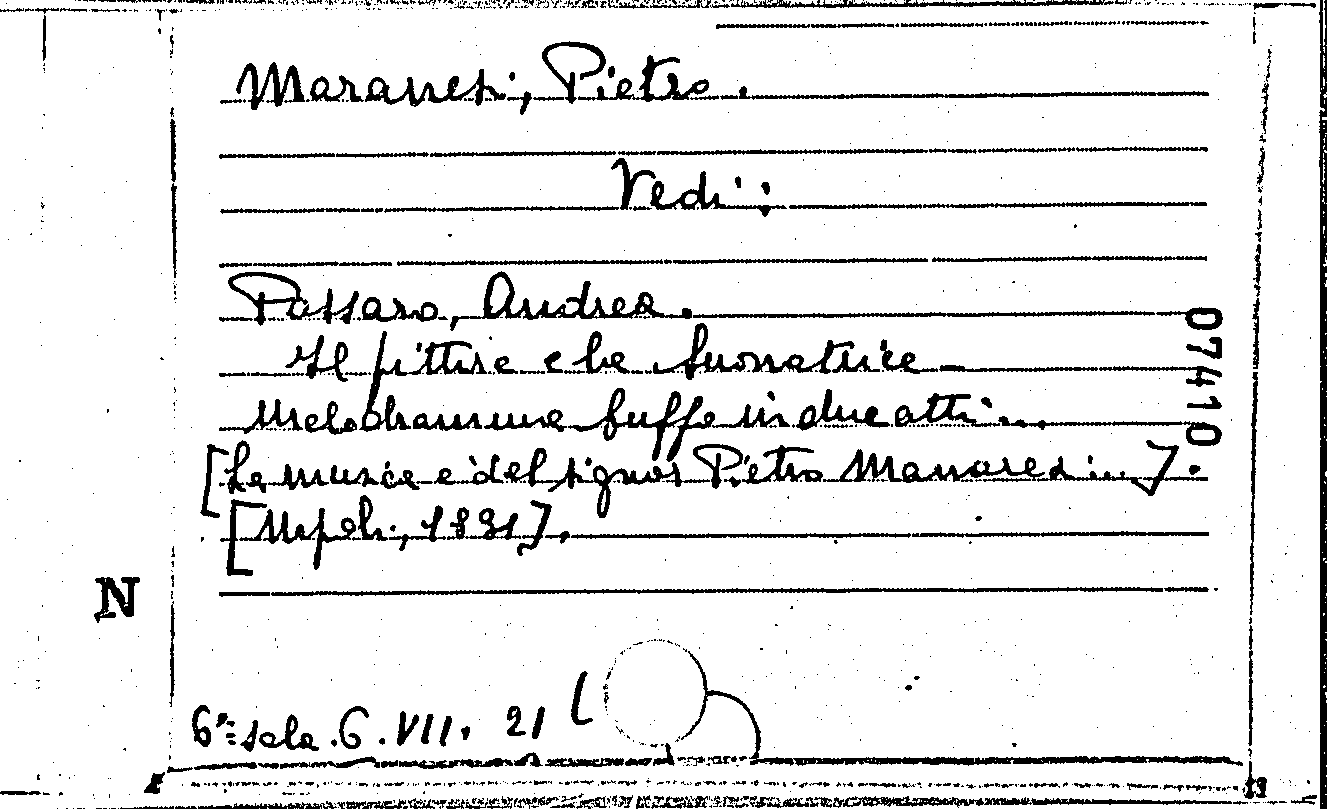 Maranesi, Pietro.
Vedi:
Passaro, Andrea.
Il pittore e la suonatrice -
Melodramma buffo in due atti...
[La musica è del signor Pietro Manaresi...].
[Napoli, 1831].
07410
N
6ª sala. 6. VII. 21